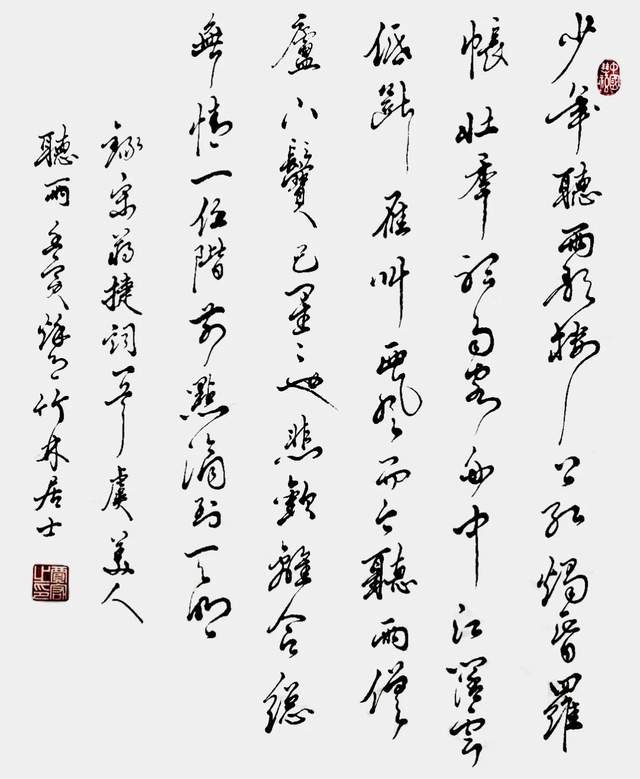 少年聽雨歌樓上紅燭昏羅
帳壯年聽雨客舟中江闊雲
低斷雁叫西風而今聽雨僧
廬下鬢已星〻也悲歡離合總
無情一任階前點滴到天明
錄宋蔣捷詞一首虞美人
聽雨壬寅竹林居士